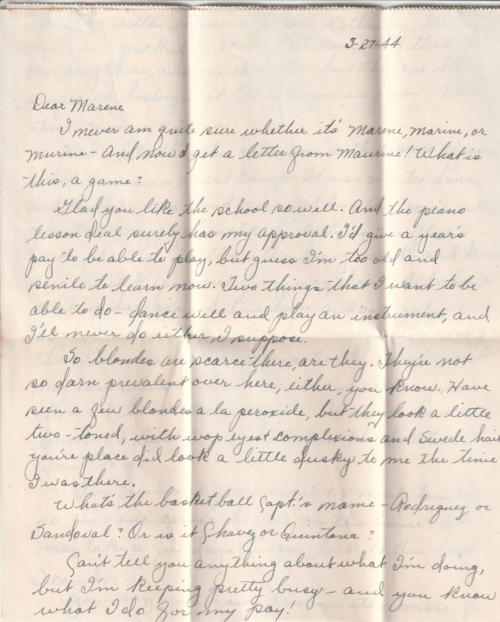 3-27-44
Dear Marene
I never am quite sure whether it's Marene, Marine, or
Murine - And now I get a letter from Maurine! What is
this, a game?
Glad you like the school so well. And the piano
lesson deal surely has my approval. I'd give a year's
pay to be able to play, but guess I'm too old and
senile to learn now. Two things that I want to be
able to do - dance well and play an instrument, and
I'll never do either, I suppose.
So blondes are scarce there, are they. They're not
so darn prevalent over here, either, you know. Have
seen a few blondes a la peroxide, but they look a little
two-toned, with wop eyes & complexions and Swede hair
you're place did look a little dusky to me the time
I was there.
What's the basketball Capt.'s name - Rodriguez or
Sandoval? Or is it Chavez or Quintana?
Can't tell you anything about what I'm doing,
but I'm keeping pretty busy - and you know
what I do for my pay!